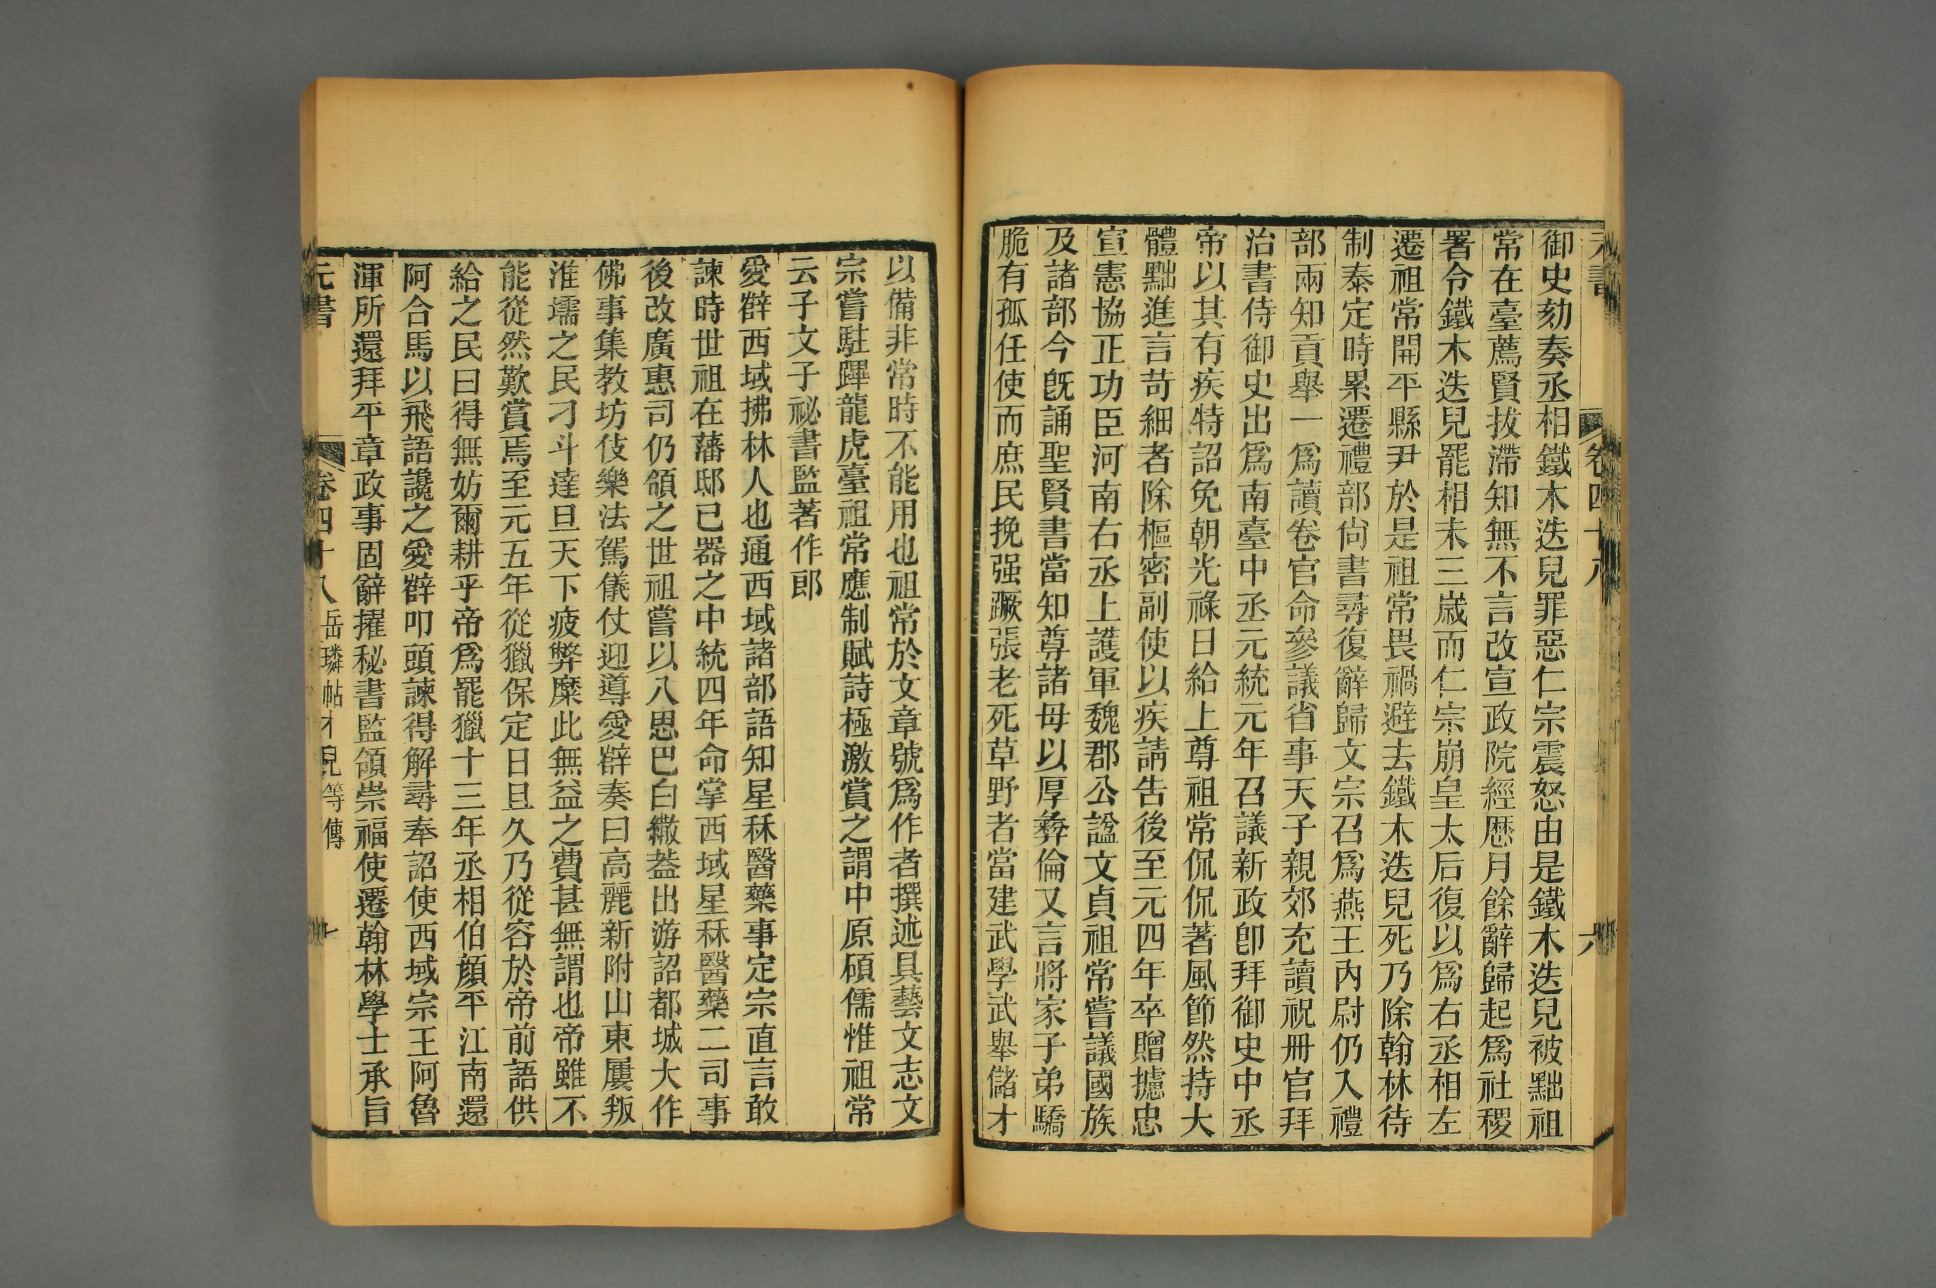 元書
卷四十八
六
御史劾奏丞相鐵木迭兒罪惡仁宗震怒由是鐵木迭兒被黜祖
常在臺薦賢拔滯知無不言改宣政院經歷月餘辭歸起爲社稷
署令鐵木迭兒罷相未三歲而仁宗崩皇太后復以爲右丞相左
遷祖常開平縣尹於是祖常畏禍避去鐵木迭兒死乃除翰林待
制泰定時累遷禮部尙書尋復辭歸文宗召爲燕王內尉仍入禮
部兩知貢舉一爲讀卷官命參議省事天子親郊充讀祝冊官拜
治書侍御史出爲南臺中丞元統元年召議新政卽拜御史中丞
帝以其有疾特詔免朝光祿日給上尊祖常侃侃著風節然持大
體黜進言苛細者除樞密副使以疾請告後至元四年卒贈攄忠
宣憲協正功臣河南右丞上護軍魏郡公諡文貞祖常嘗議國族
及諸部今旣誦聖賢書當知尊諸母以厚彝倫又言將家子弟驕
脆有孤任使而庶民挽强蹶張老死草野者當建武學武舉儲才
以備非常時不能用也祖常於文章號爲作者撰述具藝文志文
宗嘗駐蹕龍虎臺祖常應制賦詩極激賞之謂中原碩儒惟祖常
云子文子祕書監著作郎
愛辥西域拂林人也通西域諸部語知星秝醫藥事定宗直言敢
諫時世祖在藩邸已器之中統四年命掌西域星秝醫藥二司事
後改廣惠司仍領之世祖嘗以八思巴白繖葢出游詔都城大作
佛事集教坊伎樂法駕儀仗迎導愛辥奏曰高麗新附山東屢叛
淮壖之民刁斗達旦天下疲弊糜此無益之費甚無謂也帝雖不
能從然歎賞焉至元五年從獵保定日且久乃從容於帝前語供
給之民曰得無妨爾耕乎帝爲罷獵十三年丞相伯顏平江南還
阿合馬以飛語讒之愛辥叩頭諫得解尋奉詔使西域宗王阿魯
渾所還拜平章政事固辭擢秘書監領崇福使遷翰林學士承旨
元書
卷四十八
岳璘帖木兒等傳
七